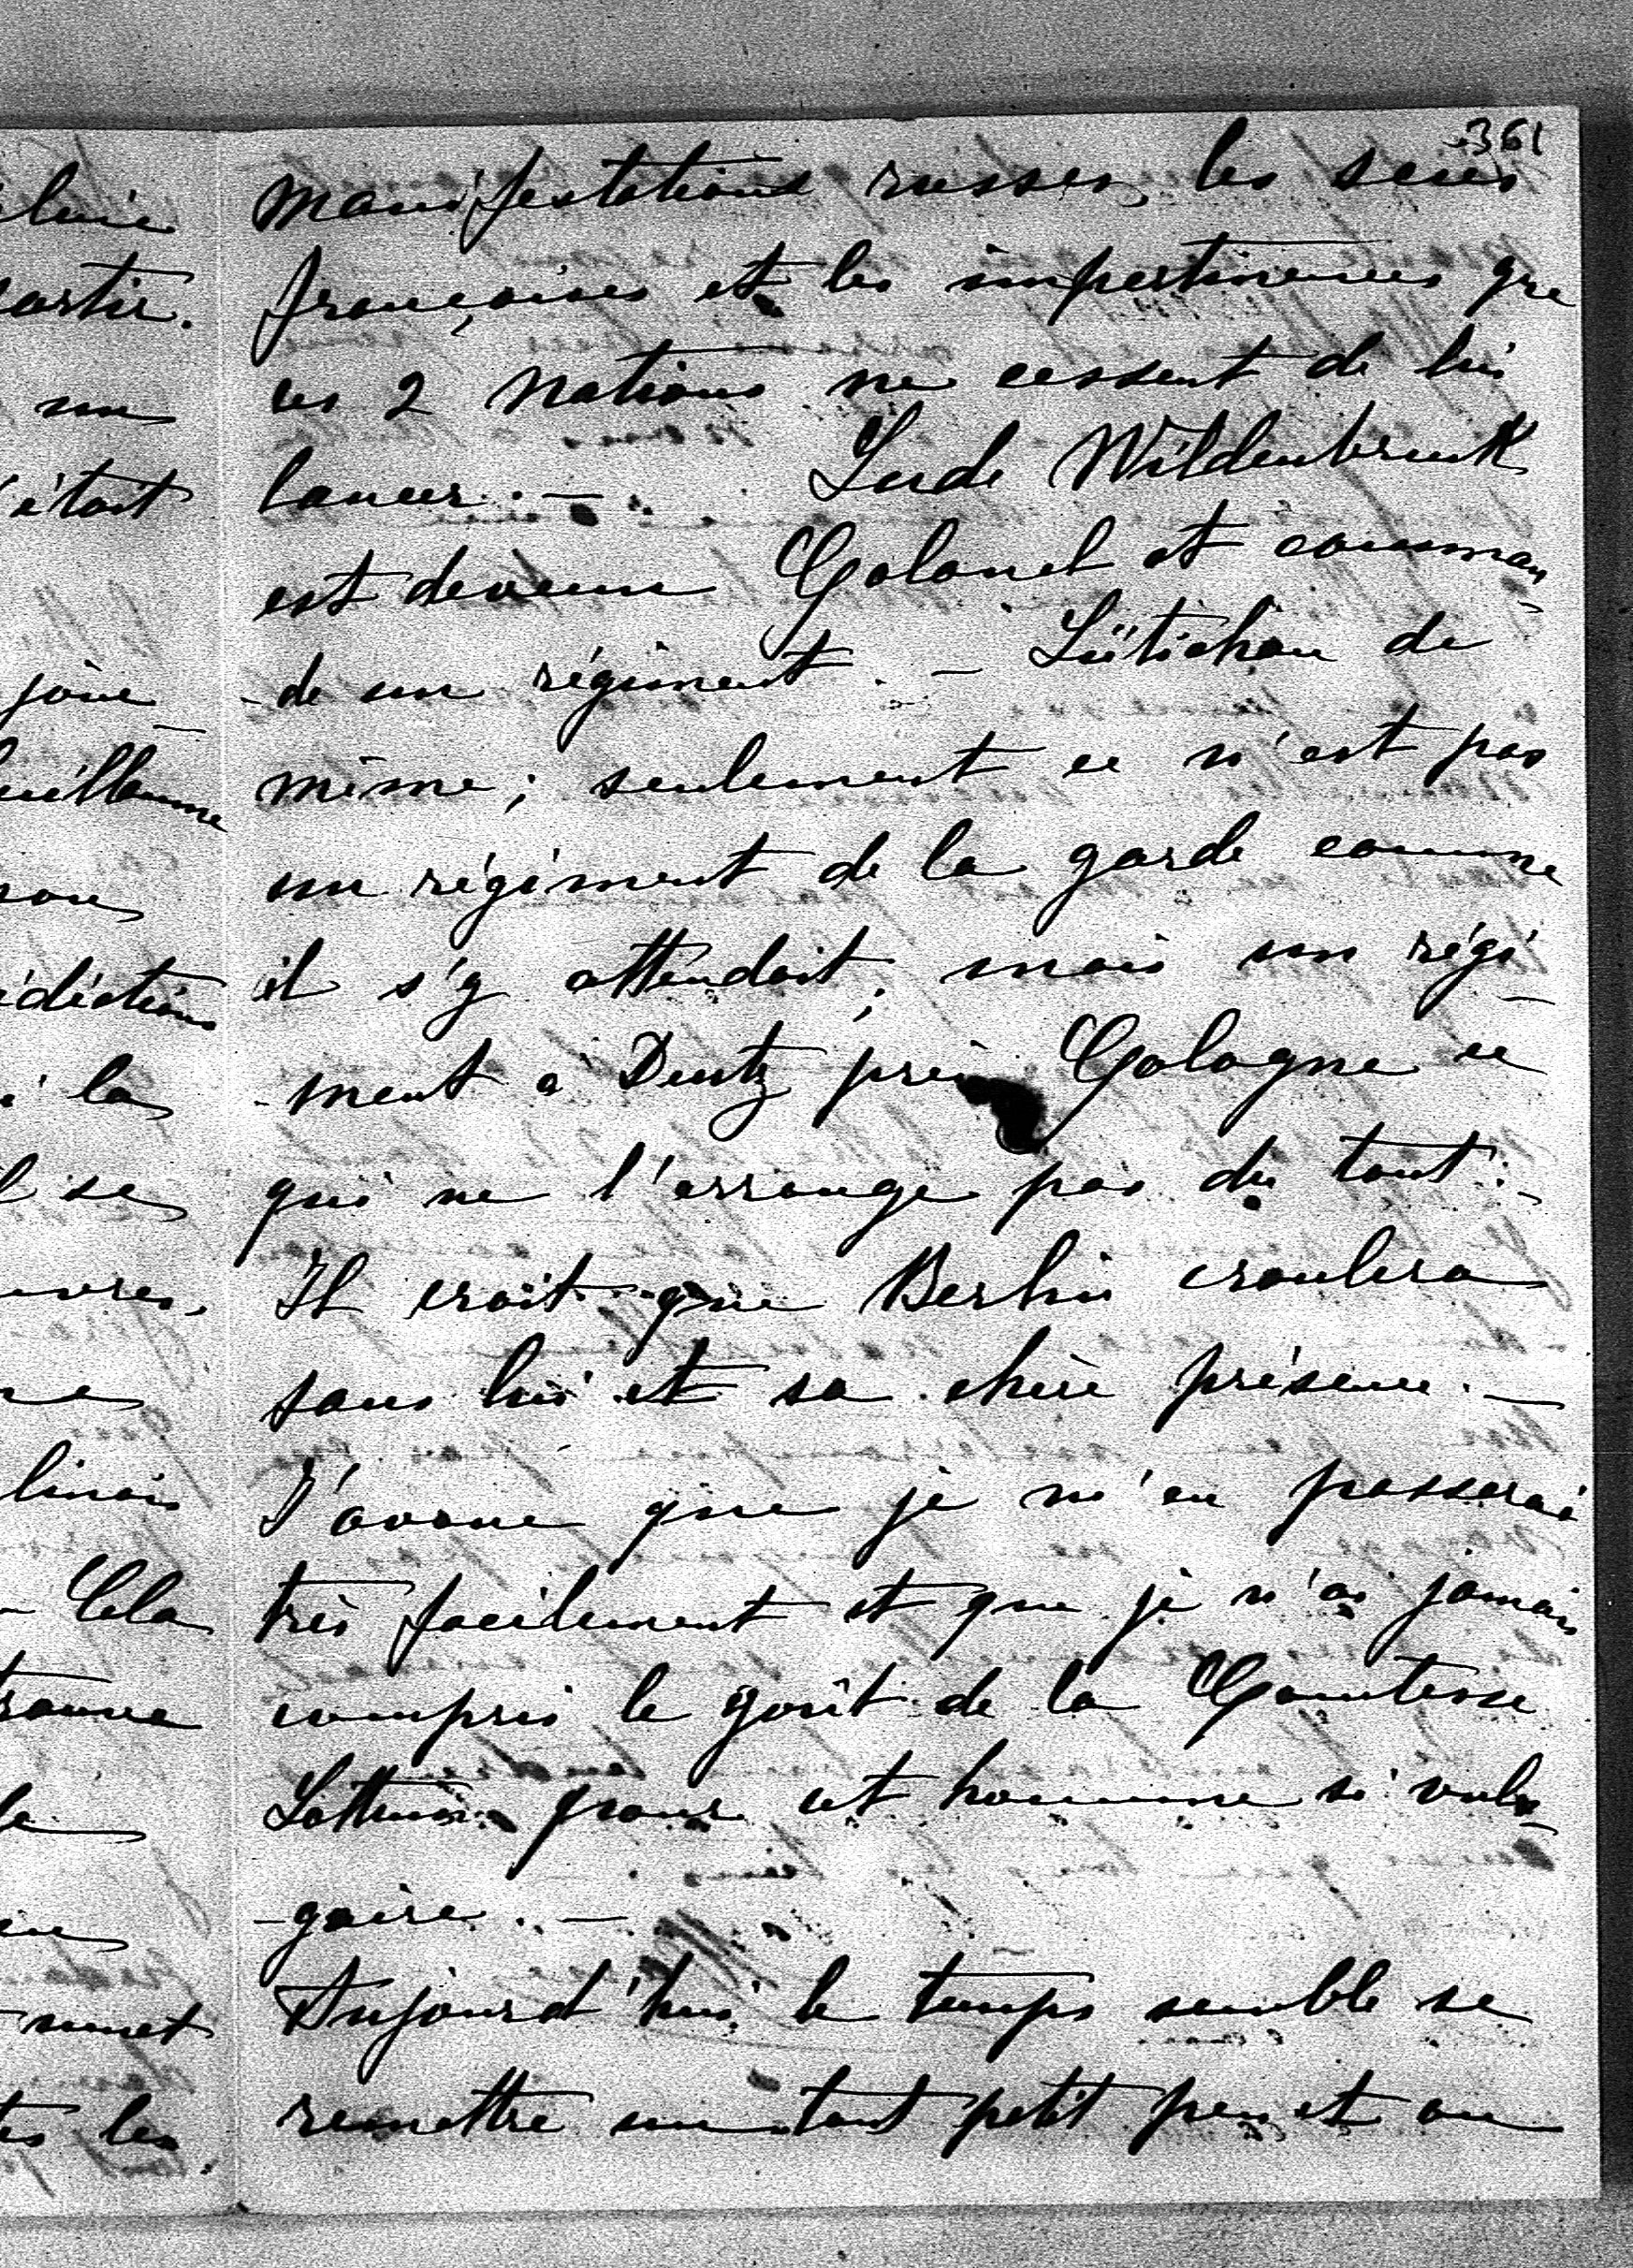 361
manifestations russes, les scies
françaises et les impertinences que
ces 2 nations ne cessent de lui
lancer. —
Lude Wildenbruck
est devenu Colonel et comman-
-de un régiment. — Lüttichau de
même; seulement ce n'est pas
un régiment de la garde comme
il s'y attendait, mais un régi-
-ment à Deutz près Cologne ce
qui ne l'arrange pas du tout. -
Il croit que Berlin croulera
sans lui et sa chère présence. —
J'avoue que je m'en passerai
très facilement et que je n'ai jamais
compris le goût de la Comtesse
Lottum pour cet homme si vul-
-gaire. —
Aujourd'hui le temps semble se
remettre un tout petit peu et on
partir.
un
était
Guillaume
la
se
Cela
trouve
les